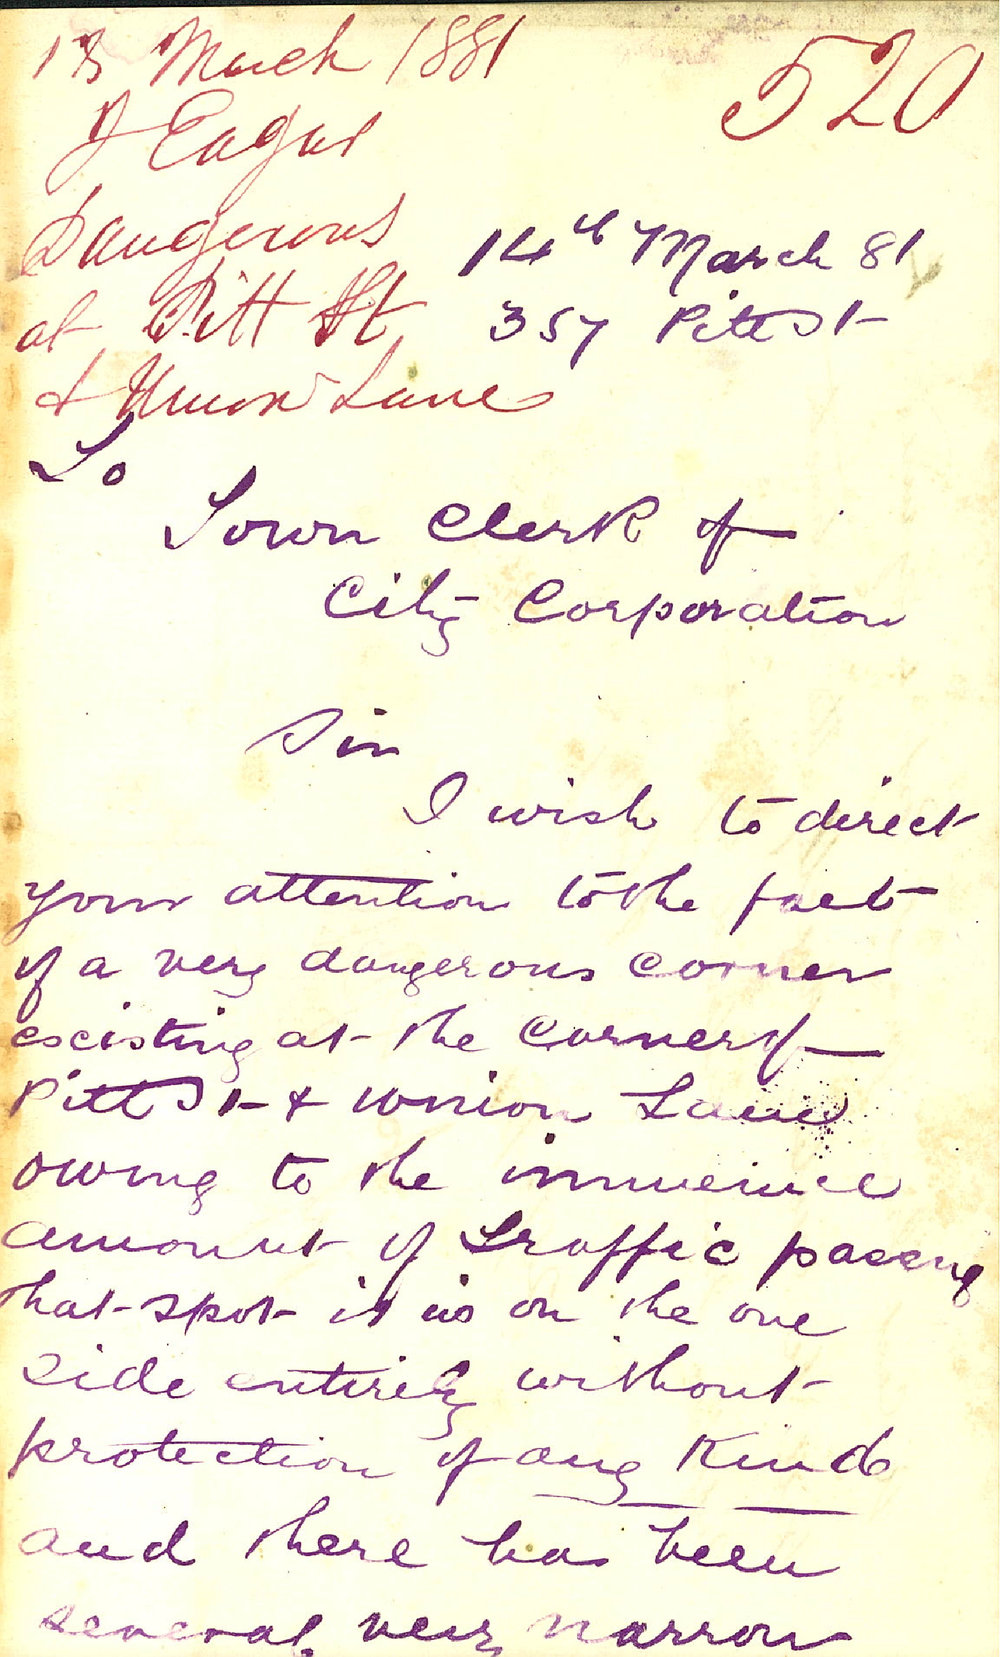 March 1881
520
J Eagar
Dangerous
at Pitt St
& Union Lane
14th March 81
357 Pitt St
To
Town Clerk of
City Corporation
Sir
I wish to direct
your attention to the fact
of a very dangerous corner
escisting at the corner of
Pitt St & Union Lane
owing to the immence
amount of traffic passing
that spot it is on the one
side entirely without
protection of any Kind
and there has been
several very narrow